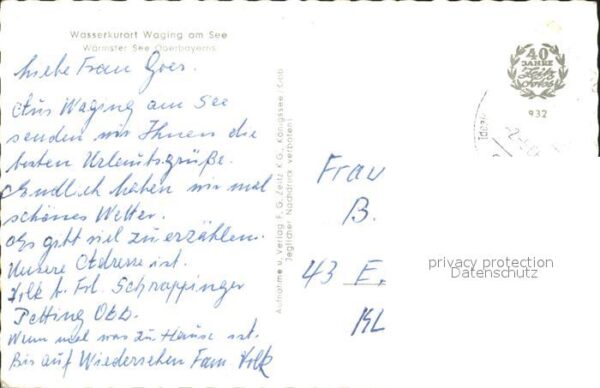 Wasserkurort Waging am See
Wärmster See Oberbayerns
Liebe Frau Goes.
Aus Waging am See
senden wir Ihnen die
besten Urlaubsgrüße.
Endlich haben wir mal
schönes Wetter.
Es gibt viel zu erzählen.
Unsere Adresse ist.
Volk b. Frl. Schrappinger
Petting Obb.
Wenn mal was zu Hause ist.
Bis auf Wiedersehen Fam Volk
Aufnahme u. Verlag F. G. Zeitz K.G., Königssee/Obb.
Jeglicher Nachdruck verboten!
40
JAHRE
Zeitz
932
Frau
B.
43 E.
KL
privacy protection
Datenschutz